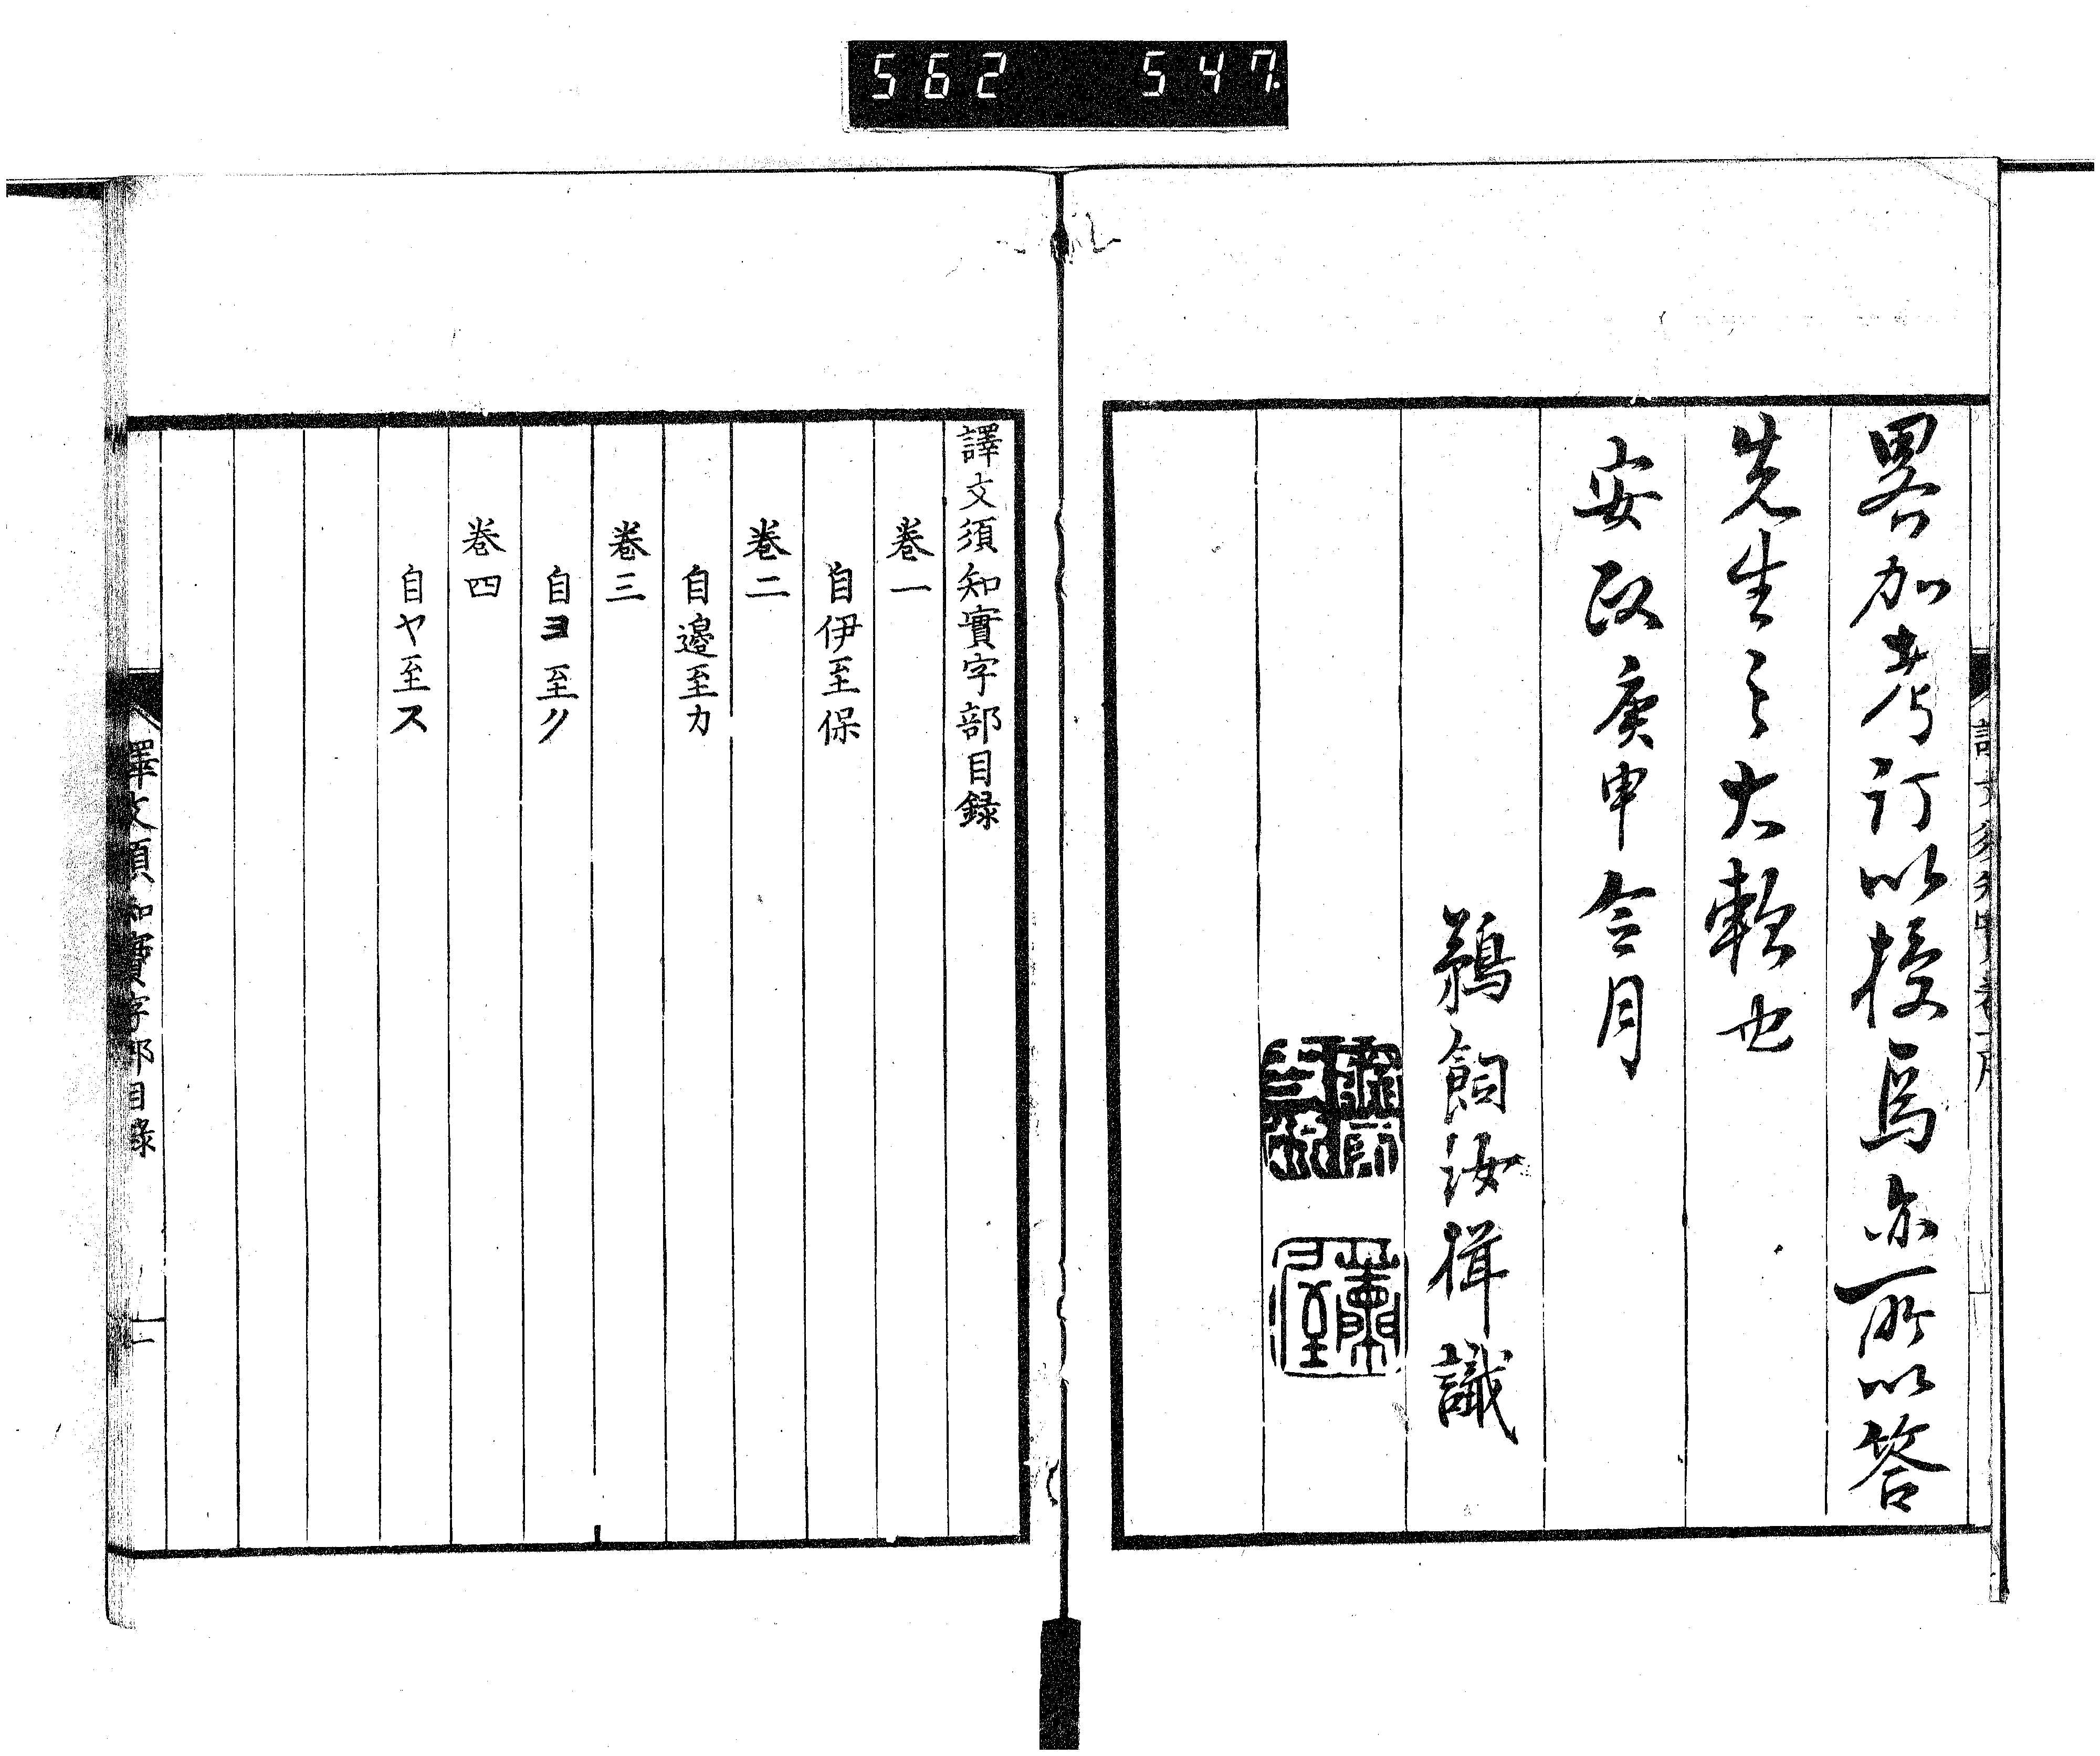 562 547
畧加考訂以授焉亦所以答
先生之大歎也
安政庚申令月
鵜飼汝楫識
譯文須知實字部目録
巻一
自伊至保
巻二
自邊至カ
巻三
自ヨ至ノ
巻四
自ヤ至ス
譯文須知實字部目録